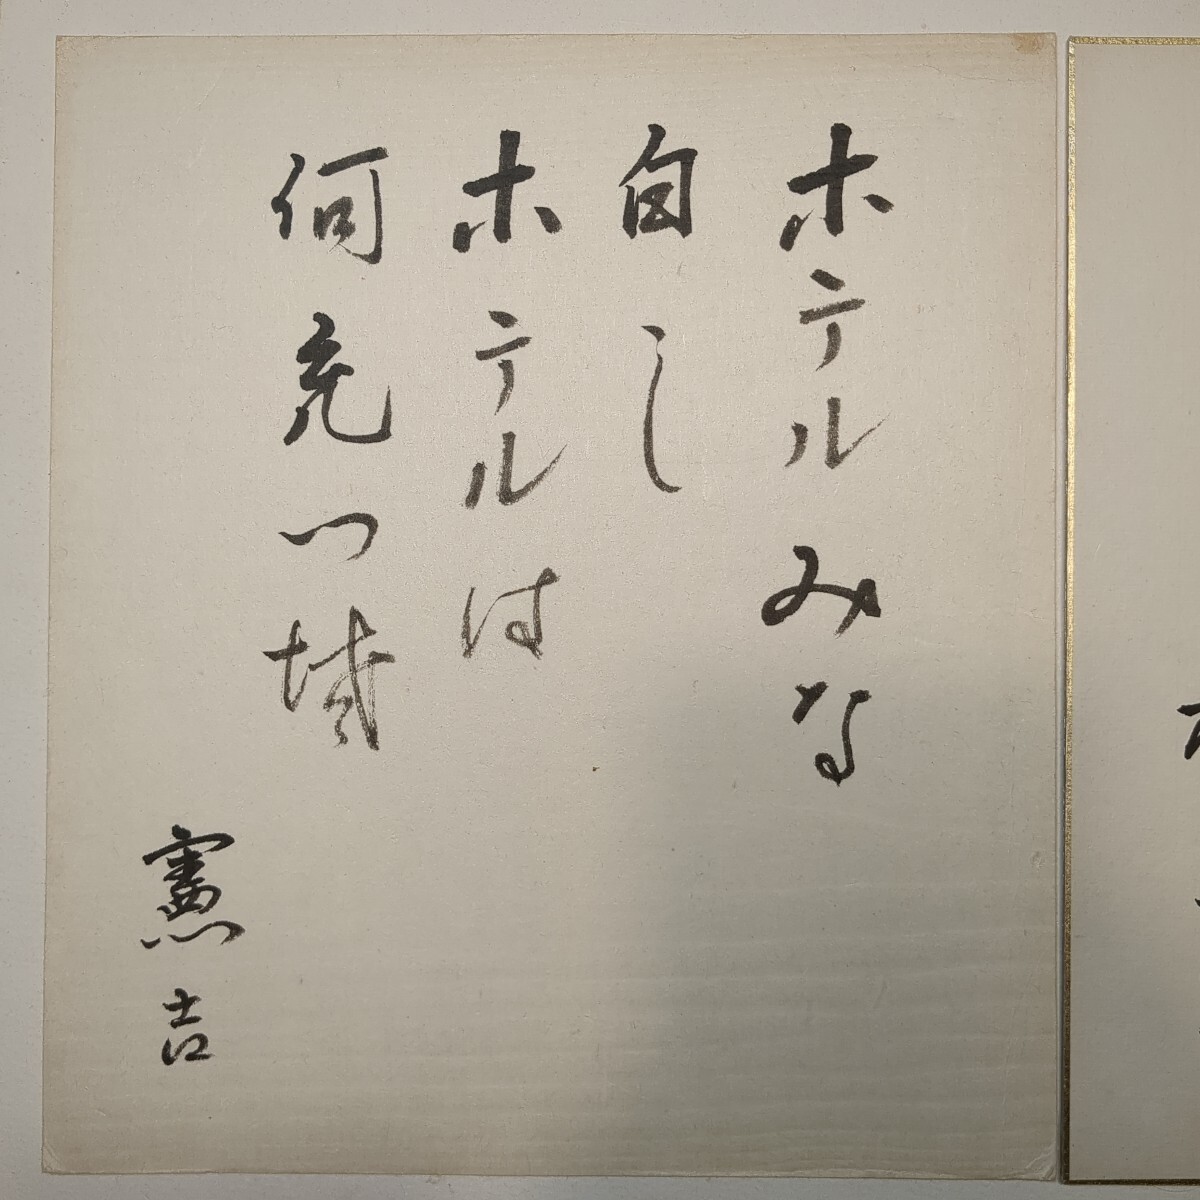 ホテルみな
白し
ホテルは
何充つ城
憲吉